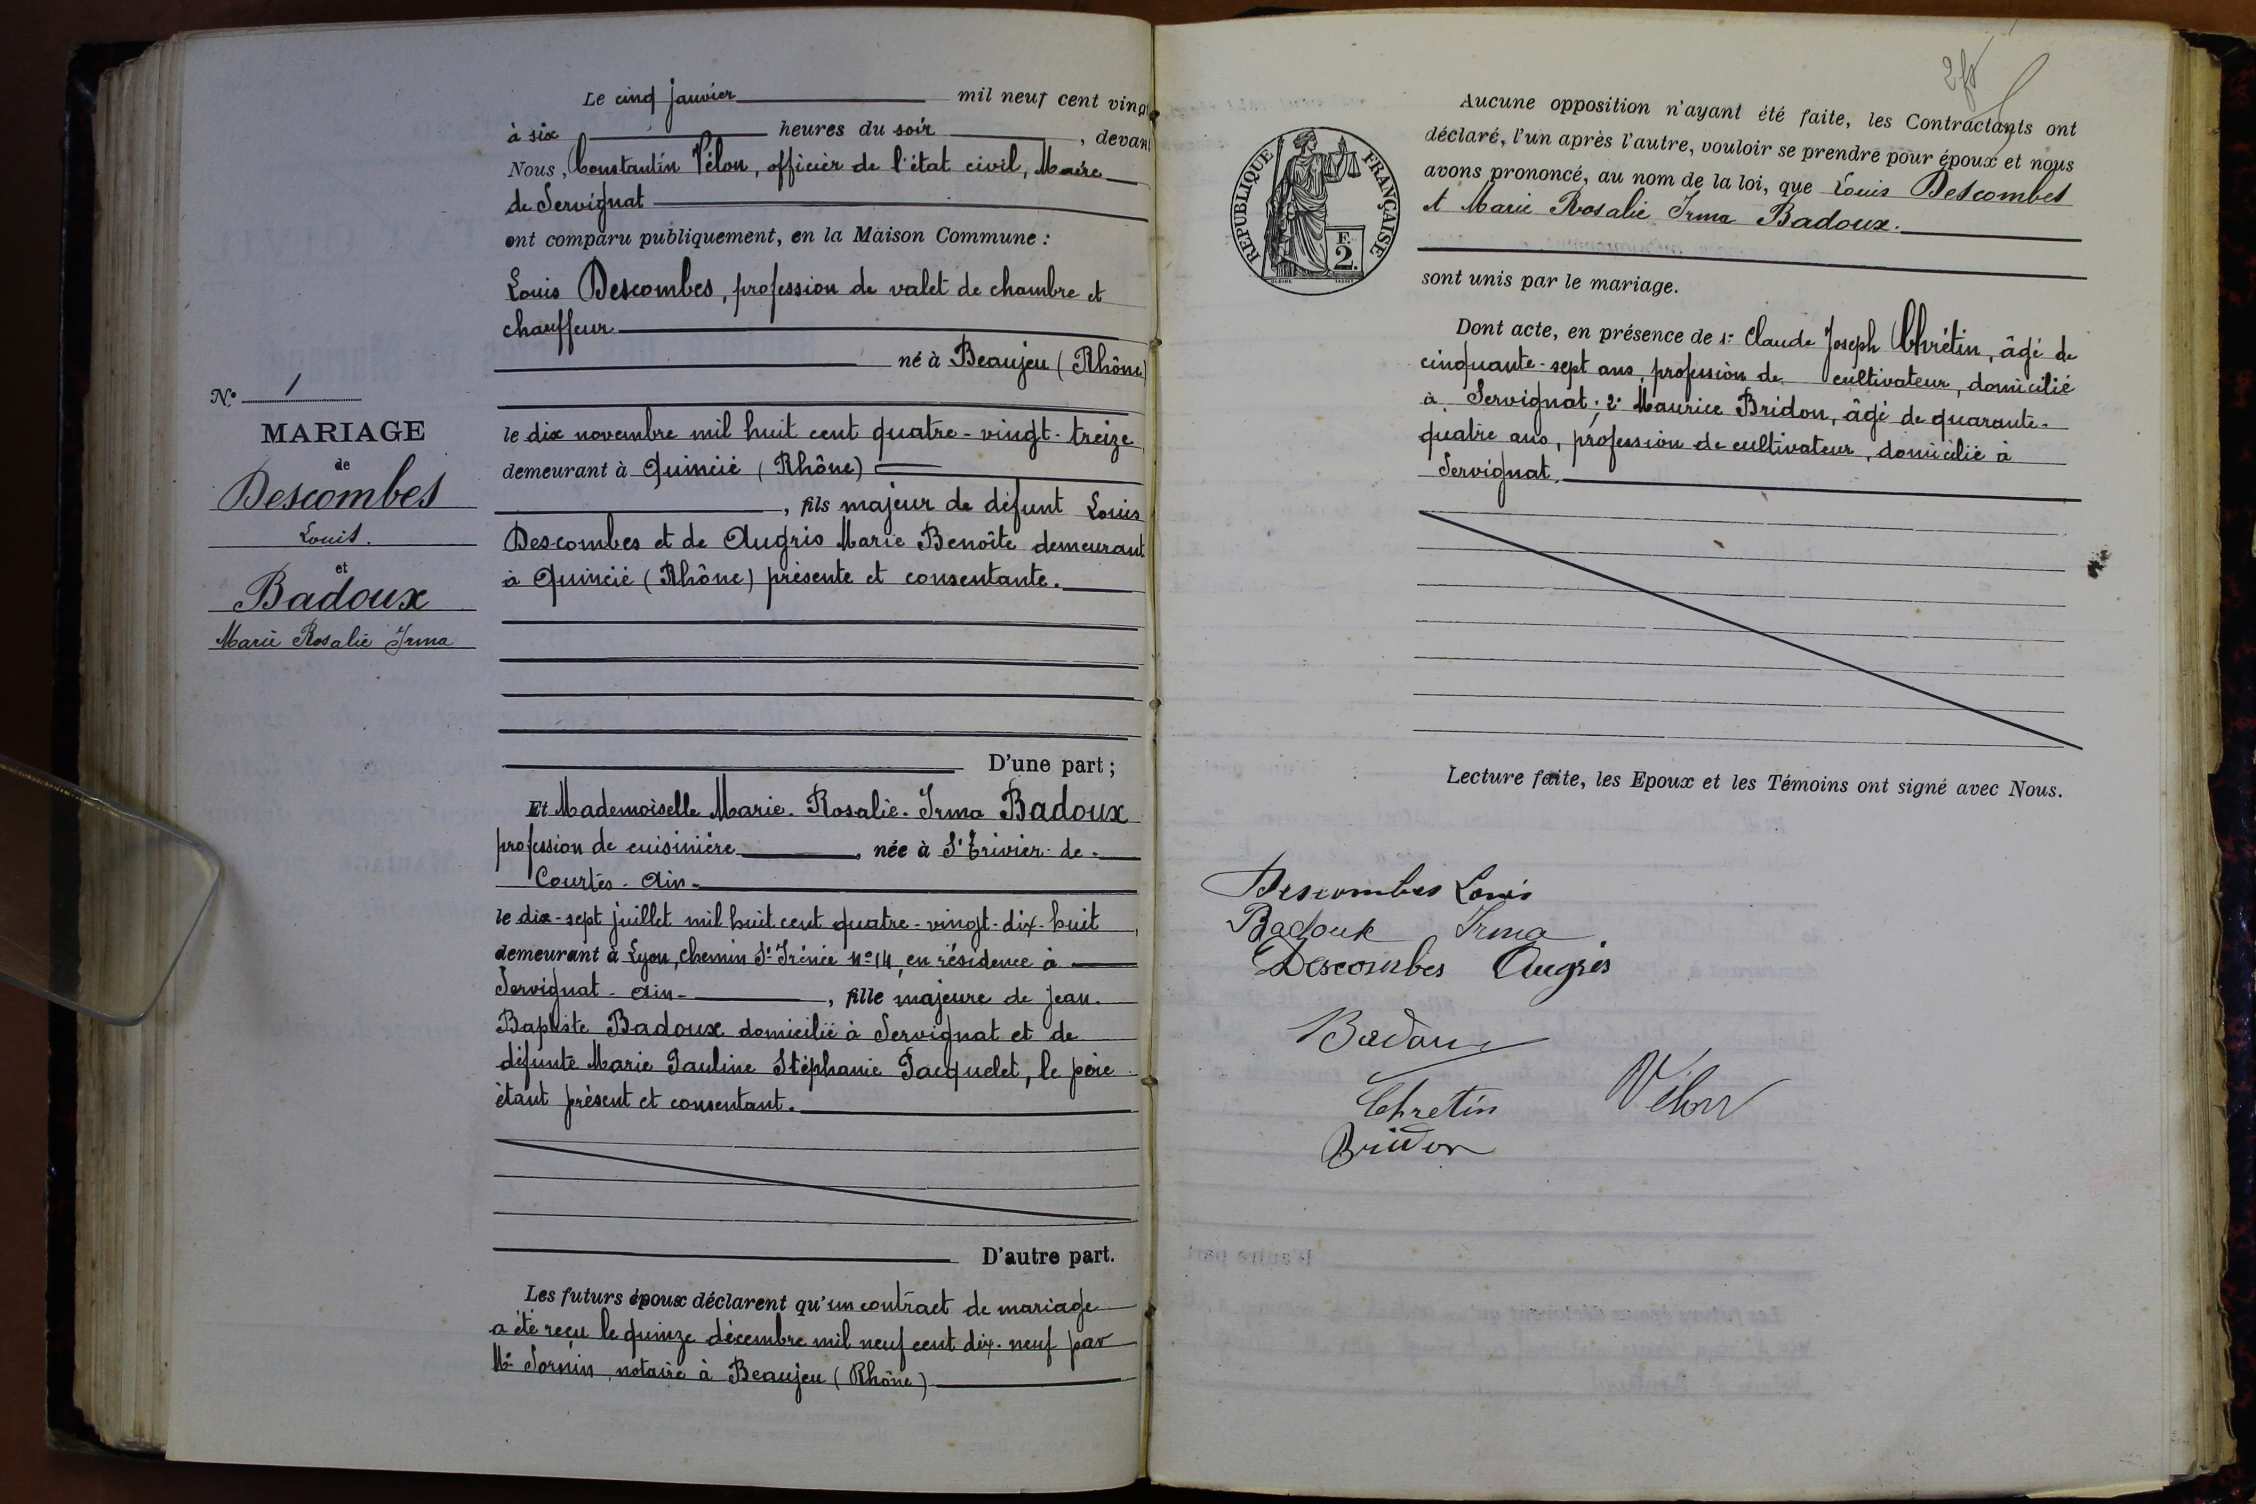 N° 1
MARIAGE
de
Descombes
Louis.
et
Badoux
Marie Rosalie Irma
Le cinq janvier mil neuf cent vingt
à six heures du soir, devant
Nous, Constantin Vélon, officier de l'état civil, Maire
de Servignat
ont comparu publiquement, en la Maison Commune :
Louis Descombes, profession de valet de chambre et
chauffeur
né à Beaujeu (Rhône)
le dix novembre mil huit cent quatre-vingt-treize
demeurant à Quincié (Rhône)
, fils majeur de défunt Louis
Descombes et de Augris Marie Benoîte demeurant
à Quincié (Rhône) présente et consentante.
D'une part ;
Et Mademoiselle Marie-Rosalie-Irma Badoux
profession de cuisinière, née à St Trivier-de-
Courtes-Ain-
le dix-sept juillet mil huit cent quatre-vingt-dix-huit
demeurant à Lyon, chemin St Irénée N° 14, en résidence à
Servignat-Ain-, fille majeure de Jean-
Baptiste Badoux domicilié à Servignat et de
défunte Marie Pauline Stéphanie Pacquelet, le père
étant présent et consentant.
D'autre part.
Les futurs époux déclarent qu'un contract de mariage
a été reçu le quinze décembre mil neuf cent dix-neuf par
Me Sornin, notaire à Beaujeu (Rhône)
REPUBLIQUE FRANÇAISE
F
2.
Aucune opposition n'ayant été faite, les Contractants ont
déclaré, l'un après l'autre, vouloir se prendre pour époux et nous
avons prononcé, au nom de la loi, que Louis Descombes
et Marie Rosalie Irma Badoux.
sont unis par le mariage.
Dont acte, en présence de 1° Claude Joseph Chrétin, âgé de
cinquante-sept ans, profession de cultivateur, domicilié
à Servignat ; 2° Maurice Bridon, âgé de quarante-
quatre ans, profession de cultivateur, domicilié à
Servignat.
Lecture faite, les Epoux et les Témoins ont signé avec Nous.
Descombes Louis
Badoux Irma
Descombes Augris
Badoux
Chretin
Vélon
Bridon